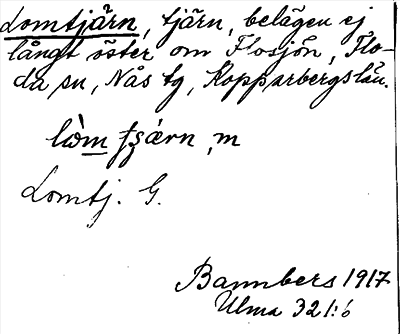 Lomtjärn, tjärn, belägen ej
långt öster om Flosjön, Flo-
da sn, Nås tg, Kopparbergs län.
lòm tʂærn, m
Lomtj. G.
Bannbers 1917
Ulma 321:6